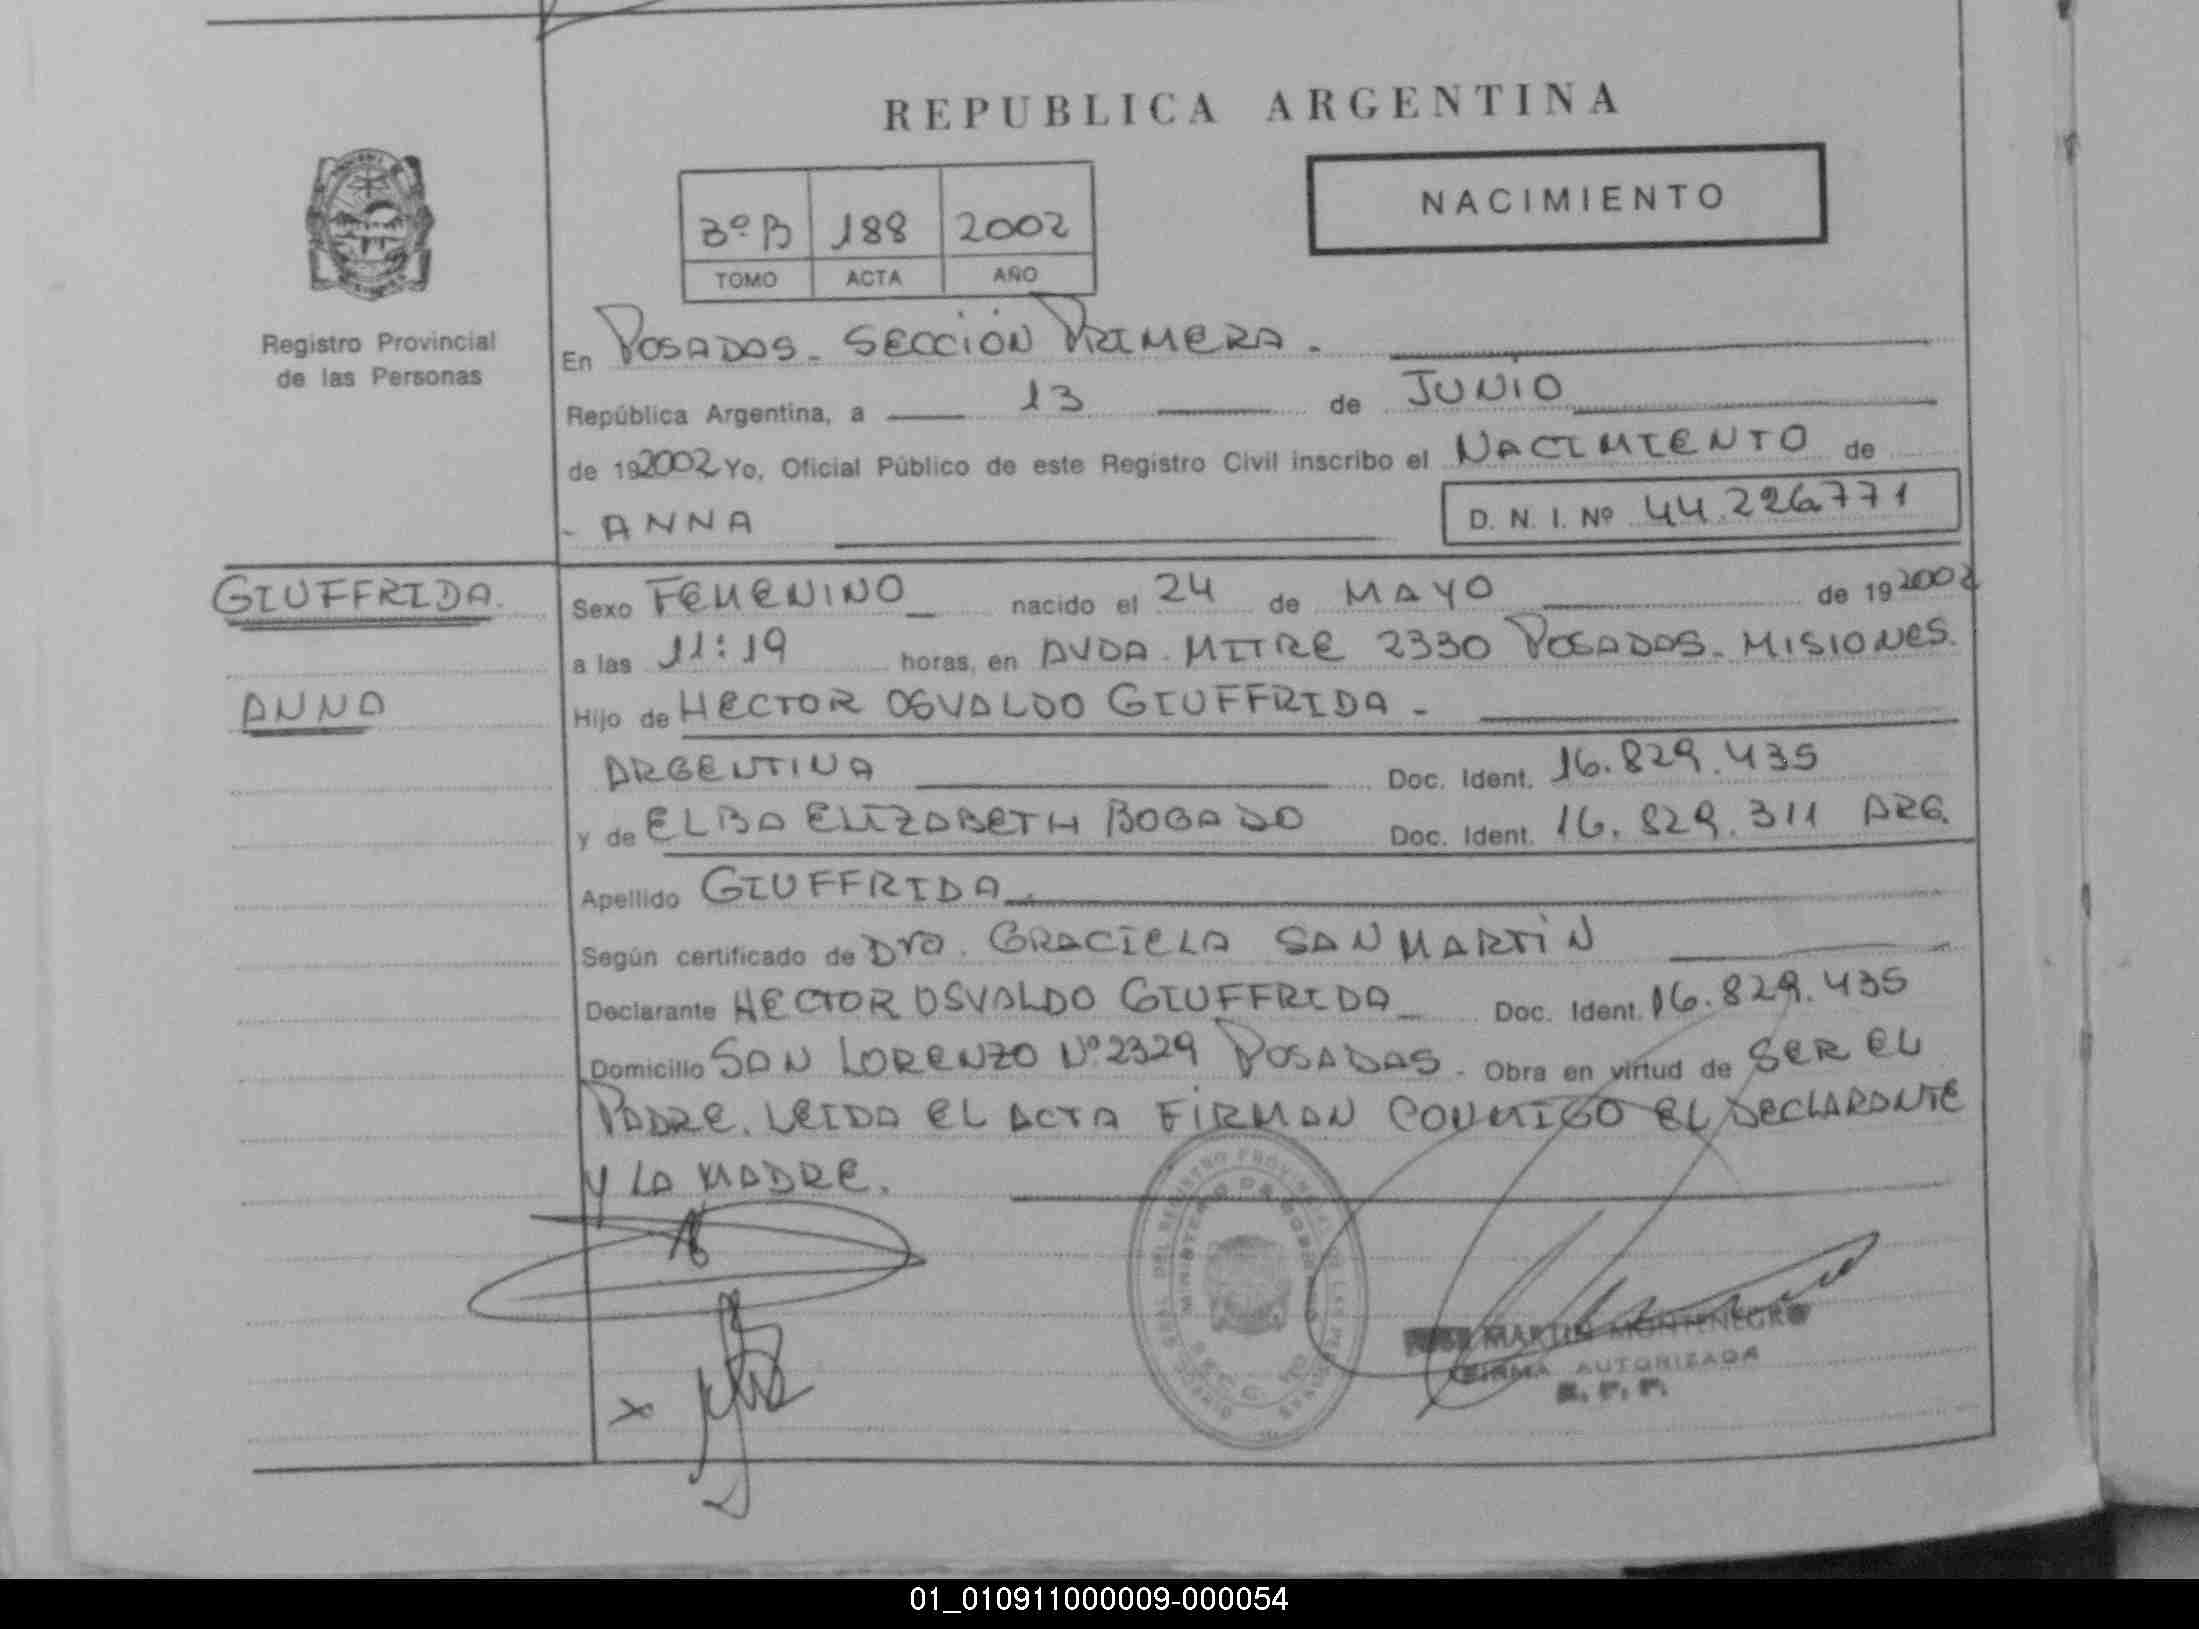 REPUBLICA ARGENTINA
NACIMIENTO
3º B 188 2002
TOMO ACTA AÑO
Registro Provincial
de las Personas
En POSADAS - SECCIÓN PRIMERA.
República Argentina, a 13 de JUNIO
de 192002 Yo, Oficial Público de este Registro Civil inscribo el NACIMIENTO de
- ANNA
D. N. I. Nº 44.226.771
GIUFFRIDA.
ANNA
Sexo FEMENINO nacido el 24 de MAYO de 19 2002
a las 11:19 horas, en AVDA. MITRE 2330 POSADAS - MISIONES.
Hijo de HECTOR OSVALDO GIUFFRIDA -
ARGENTINA Doc. Ident. 16.829.435
y de ELBA ELIZABETH BOGADO Doc. Ident. 16.829.311 ARG.
Apellido GIUFFRIDA.
Según certificado de Dra. GRACIELA SAN MARTIN
Declarante HECTOR OSVALDO GIUFFRIDA Doc. Ident. 16.829.435
Domicilio SAN LORENZO Nº 2329 POSADAS - Obra en virtud de SER EL
PADRE. LEIDA EL ACTA FIRMAN CONMIGO EL DECLARANTE
Y LA MADRE.
MARTIN MONTENEGRO
FIRMA AUTORIZADA
01_010911000009-000054